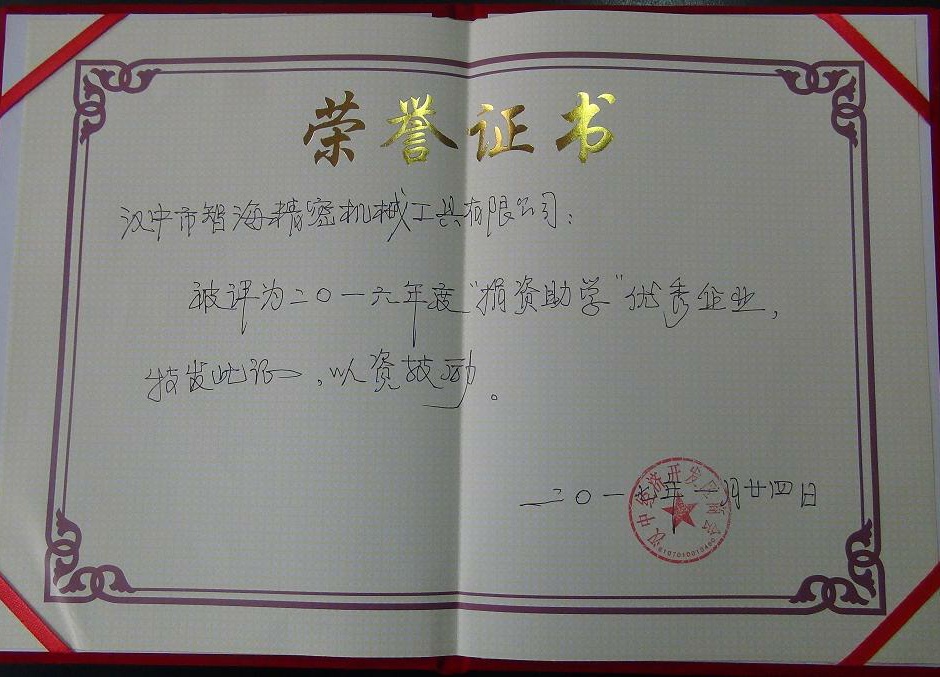 荣誉证书
汉中市智海精密机械工具有限公司：
被评为二〇一六年度“捐资助学”优秀企业，
特发此证，以资鼓励。
二〇一七年一月廿四日
汉中经济开发区
6107010010490